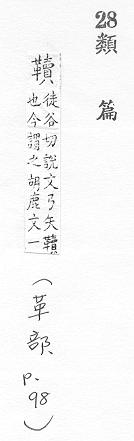 28
類篇
韥徒谷切說文弓矢韥
也今謂之胡鹿文一
(革部
p.
98)